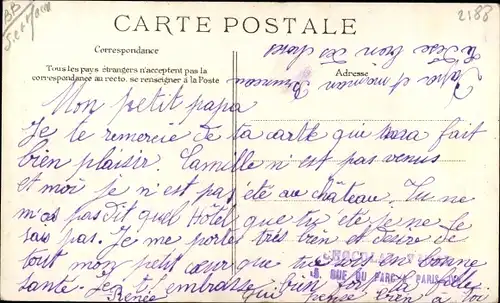 BB
2188
CARTE POSTALE
Correspondance
Tous les pays étrangers n'acceptent pas la
correspondance au recto. se renseigner à la Poste
Adresse
Mon petit papa
Je te remercie de ta carte qui mara fait
bien plaisir. Camille n'est pas venus
et moi je n'est pas été au château. Tu ne
m'as pas dit quel Hôtel que tu été je ne le
sais pas. Je me porte très bien et désire de
tout mon petit cœur que tu soit en bonne
santé. Je t'embrasse bien fort elle
Renée qui pense bien à toi
8. RUE DU PARC PARIS
papa et maman